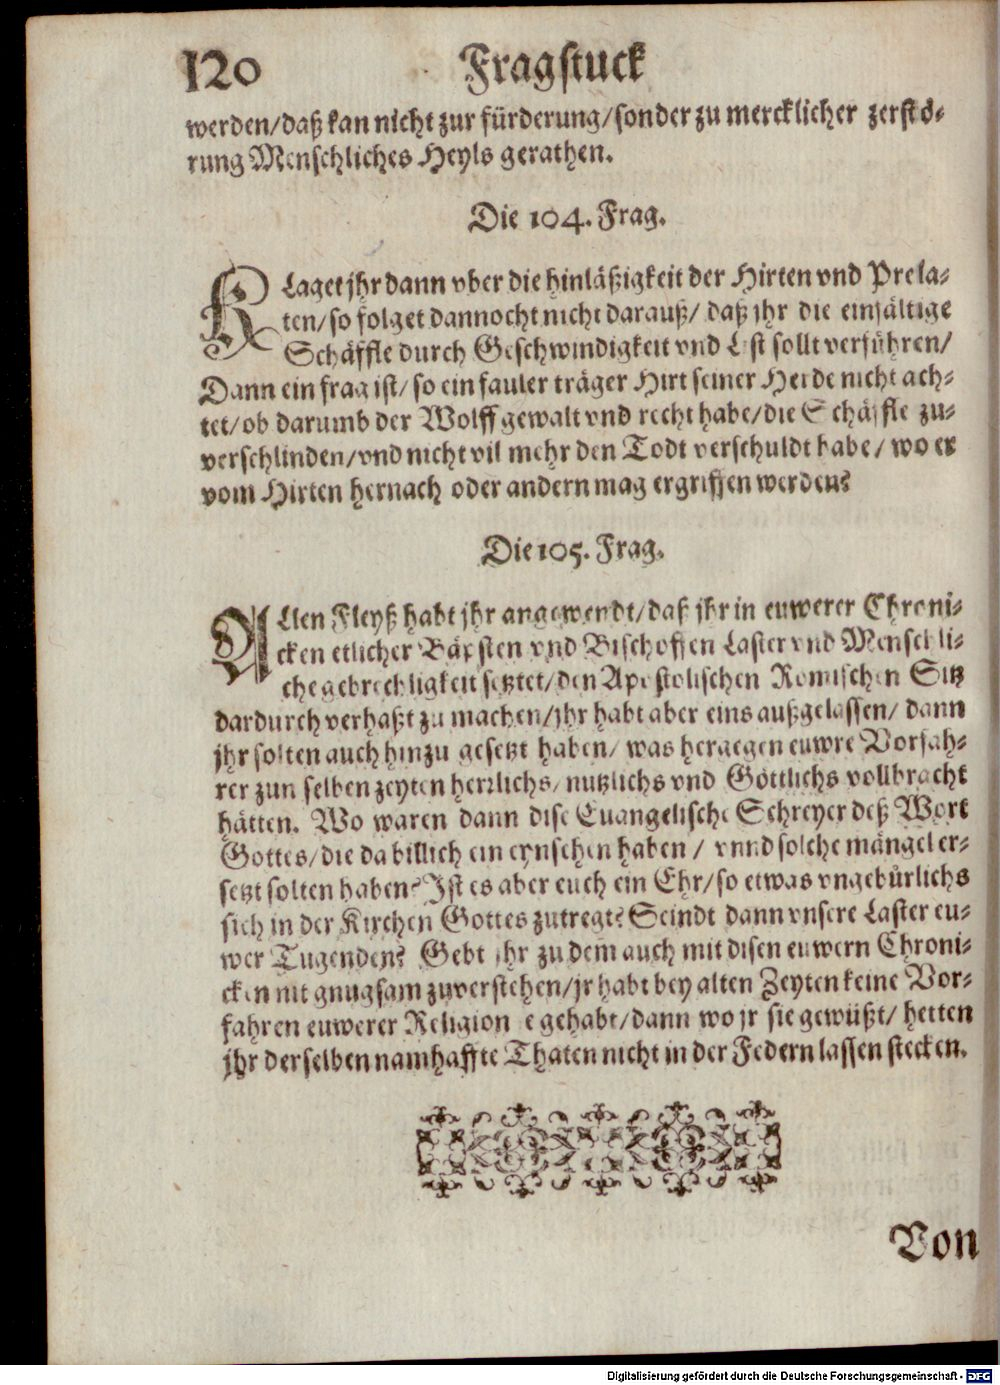 120 Fragstuck
werden/daß kan nicht zur fürderung/sonder zu mercklicher zerstö-
rung Menschliches Heyls gerathen.
Die 104. Frag.
KLaget jhr dann vber die hinläßigkeit der Hirten vnd Prela-
ten/so folget dannocht nicht darauß/ daß jhr die einfältige
Schäffle durch Geschwindigkeit vnd List sollt verführen/
Dann ein frag ist/ so ein fauler träger Hirt seiner Herde nicht ach-
tet/ob darumb der Wolff gewalt vnd recht habe/die Schäffle zu-
verschlinden/vnd nicht vil mehr den Todt verschuldt habe/ wo er
vom Hirten hernach oder andern mag ergriffen werden?
Die 105. Frag.
ALlen Fleyß habt jhr angewendt/daß jhr in euwerer Chroni-
cken etlicher Bäpsten vnd Bischoffen Laster vnd Menschli-
che gebrechligkeit setztet/den Apostolischen Romischen Sitz
dardurch verhaßt zu machen/jhr habt aber eins außgelassen/ dann
jhr solten auch hinzu gesetzt haben/ was hergegen euwre Vorfah-
rer zun selben zeyten herrlichs/ nutzlichs vnd Göttlichs vollbracht
hätten. Wo waren dann dise Euangelische Schreyer deß Wort
Gottes/die da billich ein eynsehen haben/ vnnd solche mängel er-
setzt solten haben? Ist es aber euch ein Ehr/so etwas vngebürlichs
sich in der Kirchen Gottes zutregt? Seindt dann vnsere Laster eu-
wer Tugenden? Gebt jhr zu dem auch mit disen euwern Chroni-
cken nit gnugsam zuverstehen/jr habt bey alten Zeyten keine Vor-
fahren euwerer Religion e gehabt/dann wo jr sie gewüßt/ hetten
jhr derselben namhaffte Thaten nicht in der Federn lassen stecken.
Von
Digitalisierung gefördert durch die Deutsche Forschungsgemeinschaft - DFG